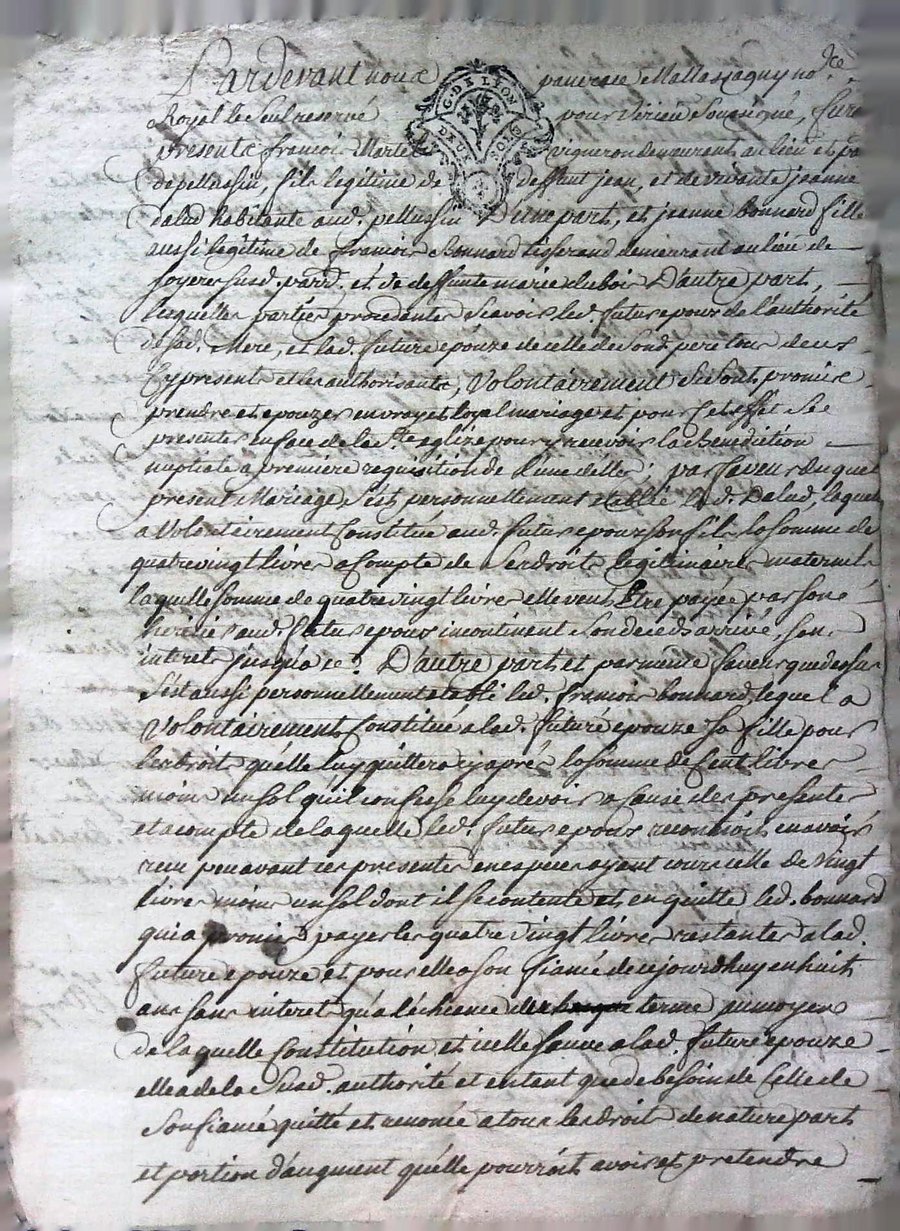 Pardevant nous pancrace Mallassagny no.re
Royal le seul reservé pour Virieu soussigné, furent
presents francois Martel vigneron demeurant au lieu et pa
de pellussin, fils legitime de deffunt jean, et de vivante jeanne
dalud habitante aud. pellussin D'une part, et jeanne bonnard fille
aussi legitime de francois Bonnard tisserand demeurant au lieu de
soyeres susd. parr. et de deffunte marie dubois D'autre part,
lesquelles parties procedantes scavoir led. futur epoux de l'authorité
de sad. Mere, et lad. future epouze de celle de sond. pere tous deux
cy presents et les authorisants, Volontairement se sont promis
prendre et epouzer en vray et loyal mariage et pour cet effet se
presenter en face de la S.te eglize pour y recevoir la benediction
nuptiale a premiere requisition de l'une d'elles; par faveur duquel
present Mariage s'est personnellement etablie lad. Dalud, laquelle
a Volontairement Constitué aud. futur epoux son fils la somme de
quatre vingt livres a Compte de ses droits legitimaires maternels
laquelle somme de quatre vingt livres elle veut Etre payée par son
heritier aud. futur epoux incontinent son deceds arrivé, sans
interets jusqu'a ce; D'autre part et par même faveur que dessus
s'est aussi personnellement etabli led. francois bonnard, lequel a
Volontairement Constitué a lad. future epouze sa fille pour
les droits qu'elle luy quittera cy aprés la somme de Cent livres
moins un sol qu'il confesse luy devoir a Cause des presentes
et a compte de laquelle led. futur epoux reconnoit en avoir
recu peu avant ces presentes en especes ayant cours celle de vingt
livres moins un sol dont il se contente et en quitte led. bonnard
qui a promis payer les quatre vingt livres restantes a lad.
future epouze et pour elle a son fiancé de ce jourdhuy en huit
ans sans interet qu'a l'échéance terme au moyen
de laquelle Constitution et icelle sauve a lad. future epouze
elle a de la susd. authorité et entant que de besoin de Celle de
son fiancé quitté et renoncé a tous les droits de nature part
et portion d'augment qu'elle pourroit avoir et pretendre
G. DE LYON
DEUX SOLS